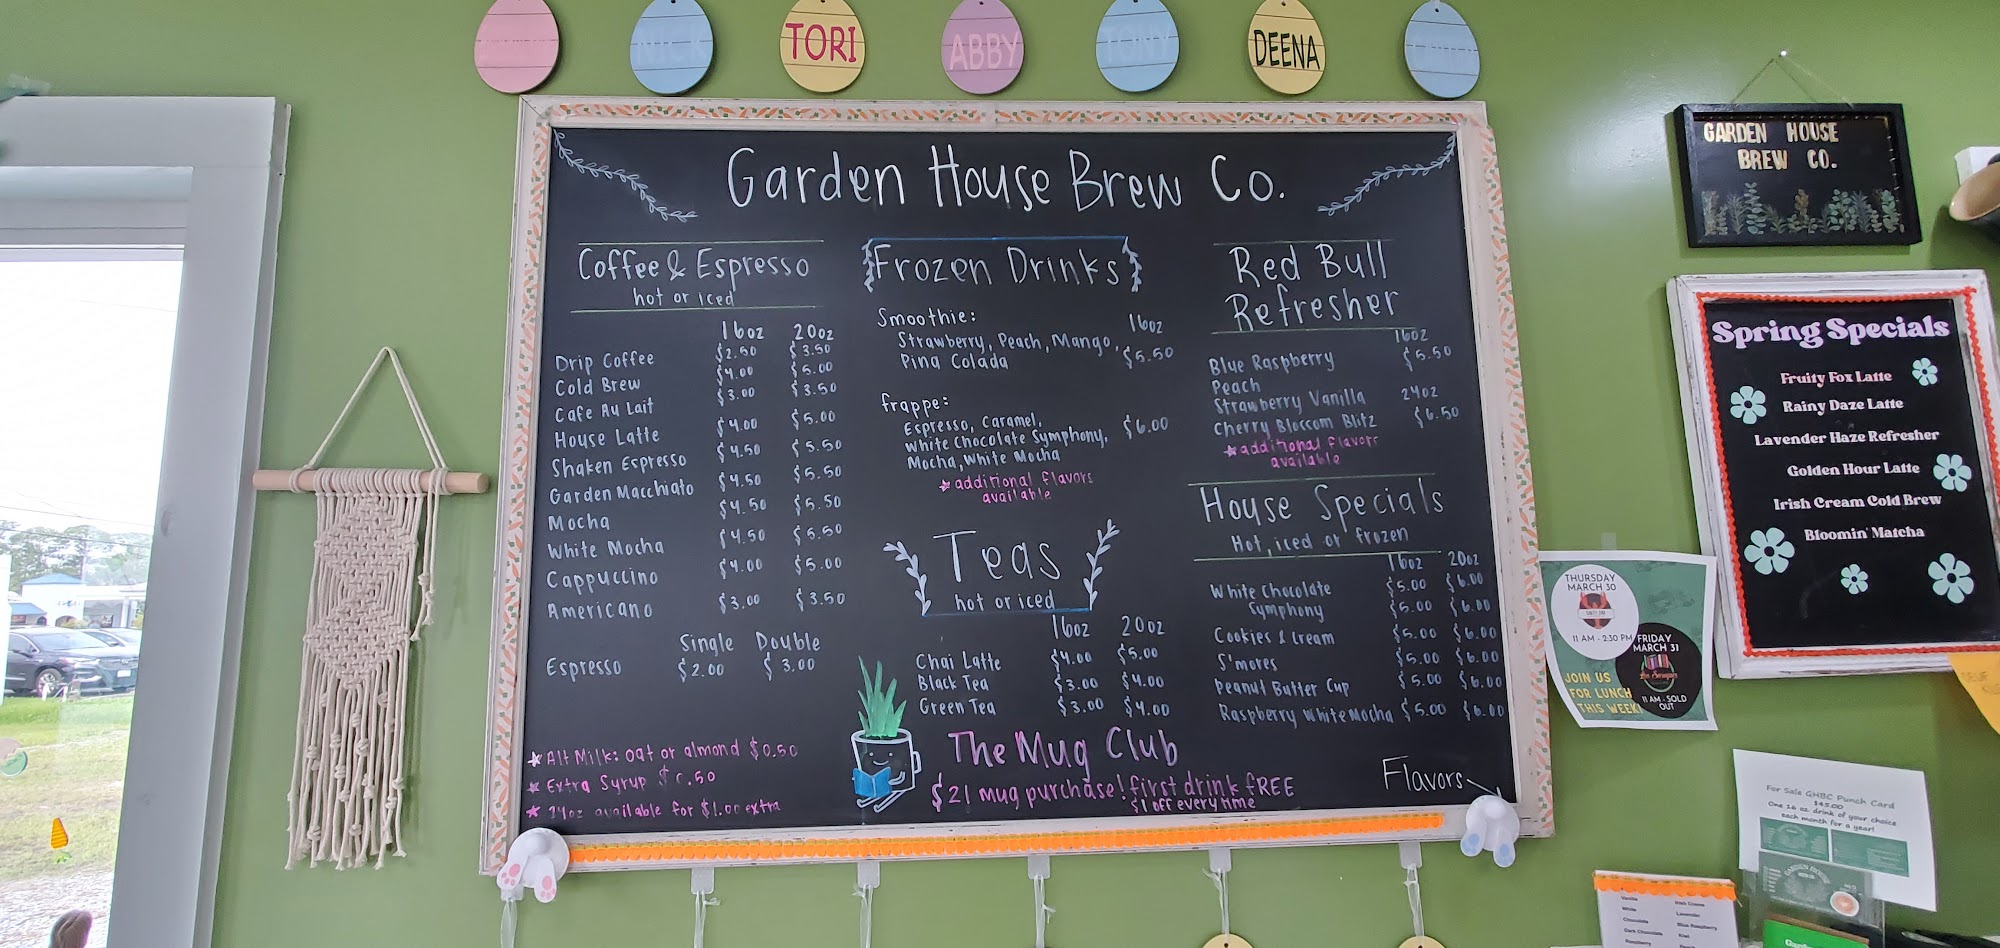 NICK
TORI
ABBY
TONY
DEENA
Garden House Brew Co.
Coffee & Espresso
hot or iced
16oz 20oz
Drip Coffee $2.50 $3.50
Cold Brew $4.00 $5.00
Cafe Au Lait $3.00 $3.50
House Latte $4.00 $5.00
Shaken Espresso $4.50 $5.50
Garden Macchiato $4.50 $5.50
Mocha $4.50 $5.50
White Mocha $4.50 $5.50
Cappuccino $4.00 $5.00
Americano $3.00 $3.50
Single Double
Espresso $2.00 $3.00
* Alt Milk: oat or almond $0.50
* Extra Syrup $0.50
* 24oz available for $1.00 extra
Frozen Drinks
Smoothie: 16oz
Strawberry, Peach, Mango,
Pina Colada $5.50
frappe:
Espresso, Caramel,
White Chocolate Symphony, $6.00
Mocha, White Mocha
* additional flavors
available
Teas
hot or iced
16oz 20oz
Chai Latte $4.00 $5.00
Black Tea $3.00 $4.00
Green Tea $3.00 $4.00
The Mug Club
$21 mug purchase! first drink FREE
$1 off every time
Red Bull
Refresher
16oz
Blue Raspberry $5.50
Peach
Strawberry Vanilla 24oz
Cherry Blossom Blitz $6.50
* additional flavors
available
House Specials
Hot, iced or frozen
16oz 20oz
White Chocolate $5.00 $6.00
Symphony $5.00 $6.00
Cookies & Cream $5.00 $6.00
S'mores $5.00 $6.00
Peanut Butter Cup $5.00 $6.00
Raspberry White Mocha $5.00 $6.00
Flavors
GARDEN HOUSE
BREW CO.
Spring Specials
Fruity Fox Latte
Rainy Daze Latte
Lavender Haze Refresher
Golden Hour Latte
Irish Cream Cold Brew
Bloomin' Matcha
THURSDAY
MARCH 30
11 AM - 2:30 PM
FRIDAY
MARCH 31
11 AM - SOLD
OUT
JOIN US
FOR LUNCH
THIS WEEK!
For Sale GHBC Punch Card
$45.00
One 16 oz drink of your choice
each month for a year!
Vanilla Irish Creme
White Lavender
Chocolate Blue Raspberry
Dark Chocolate Kiwi
Raspberry Peach